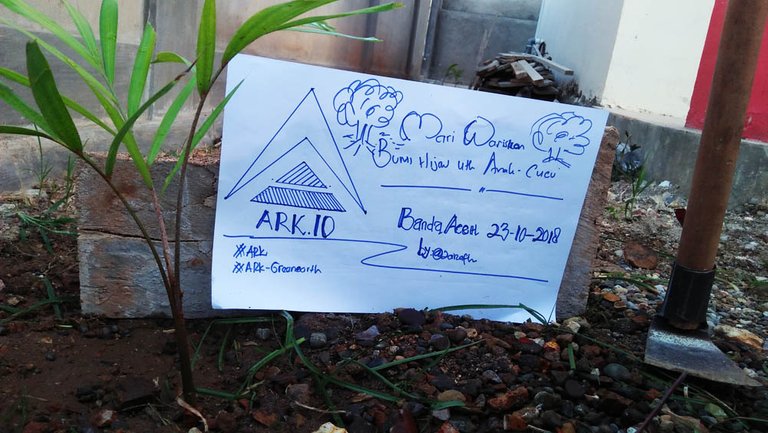 Mari Wariskan
Bumi Hijau utk Anak-Cucu
ARK.IO
Banda Aceh 23-10-2018
#ARK
#ARK-Greenearth
by: